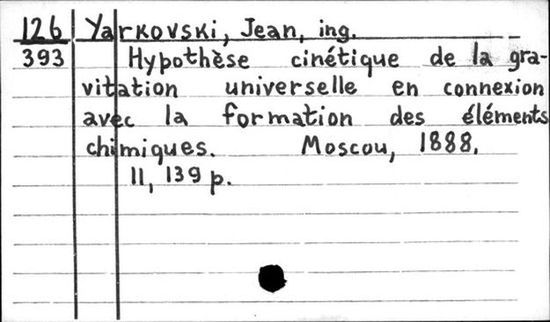 126 Yarkovski, Jean, ing.
393 Hypothèse cinétique de la gra-
vitation universelle en connexion
avec la formation des éléments
chimiques. Moscou, 1888.
II, 139 p.